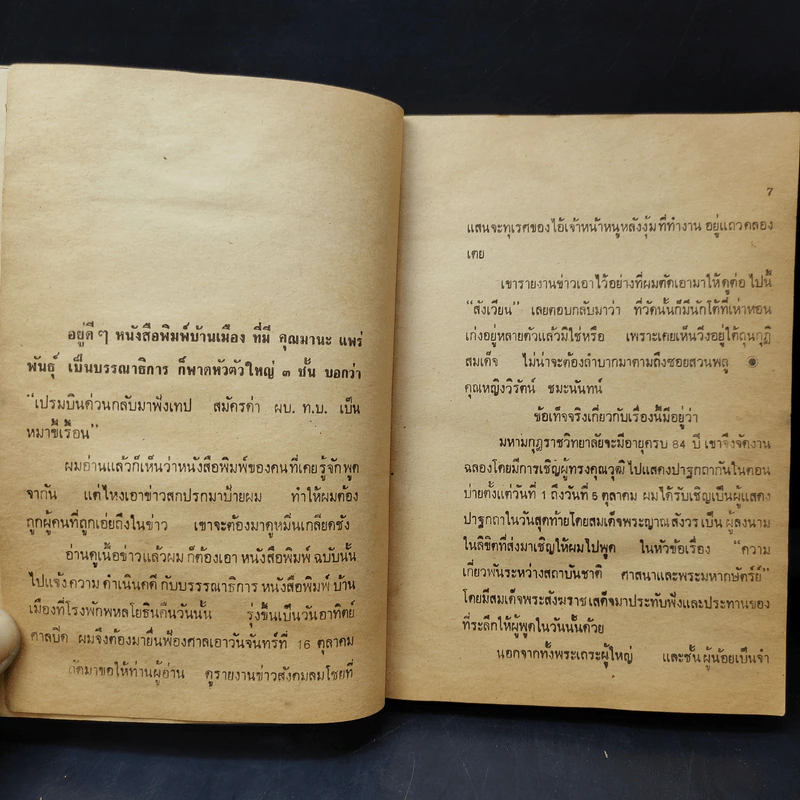 อยู่ดี ๆ หนังสือพิมพ์บ้านเมือง ที่มี คุณมานะ แพร่
พันธุ์ เป็นบรรณาธิการ ก็พาดหัวตัวใหญ่ ๓ ชั้น บอกว่า
“เปรมบินด่วนกลับมาฟังเทป สมัครด่า ผบ. ท.บ. เป็น
หมาขี้เรื้อน”
ผมอ่านแล้วก็เห็นว่าหนังสือพิมพ์ของคนที่เคยรู้จักพูด
จากัน แต่ไหงเอาข่าวสกปรกมาป้ายผม ทำให้ผมต้อง
ถูกผู้คนที่ถูกเอ่ยถึงในข่าว เขาจะต้องมาดูหมิ่นเกลียดชัง
อ่านดูเนื้อข่าวแล้วผม ก็ต้องเอา หนังสือพิมพ์ ฉบับนั้น
ไปแจ้งความ ดำเนินคดี กับบรรรณาธิการ หนังสือพิมพ์ บ้าน
เมืองที่โรงพักพหลโยธินคืนวันนั้น รุ่งขึ้นเป็นวันอาทิตย์
ศาลปิด ผมจึงต้องมายื่นฟ้องศาลเอาวันจันทร์ที่ 16 ตุลาคม
ตัดมาขอให้ท่านผู้อ่าน ดูรายงานข่าวสังคมลมโชยที่
7
แสนจะทุเรศของไอ้เจ้าหน้าหนูหลังงุ้มที่ทำงาน อยู่แถวคลอง
เตย
เขารายงานข่าวเอาไว้อย่างที่ผมตัดเอามาให้ดูต่อ ไปนี้
“สังเวียน” เลยตอบกลับมาว่า ที่วัดนั้นก็มีนักโต้ที่เห่าหอน
เก่งอยู่หลายตัวแล้วมิใช่หรือ เพราะเคยเห็นวิ่งอยู่ใต้ถุนกุฏิ
สมเด็จ ไม่น่าจะต้องลำบากมาตามถึงซอยสวนพลู ●
คุณหญิงวิรัตน์ ชมะนันทน์
ข้อเท็จจริงเกี่ยวกับเรื่องนี้มีอยู่ว่า
มหามกุฎราชวิทยาลัยจะมีอายุครบ 84 ปี เขาจึงจัดงาน
ฉลองโดยมีการเชิญผู้ทรงคุณวุฒิ ไปแสดงปาฐกถากันในตอน
บ่ายตั้งแต่วันที่ 1 ถึงวันที่ 5 ตุลาคม ผมได้รับเชิญเป็นผู้แสดง
ปาฐกถาในวันสุดท้ายโดยสมเด็จพระญาณสังวร เป็น ผู้ลงนาม
ในลิขิตที่ส่งมาเชิญให้ผมไปพูด ในหัวข้อเรื่อง “ความ
เกี่ยวพันระหว่างสถาบันชาติ ศาสนาและพระมหากษัตริย์”
โดยมีสมเด็จพระสังฆราช เสด็จมาประทับฟังและประทานของ
ที่ระลึกให้ผู้พูดในวันนั้นด้วย
นอกจากทั้งพระเถระผู้ใหญ่ และชั้นผู้น้อยเป็นจำ